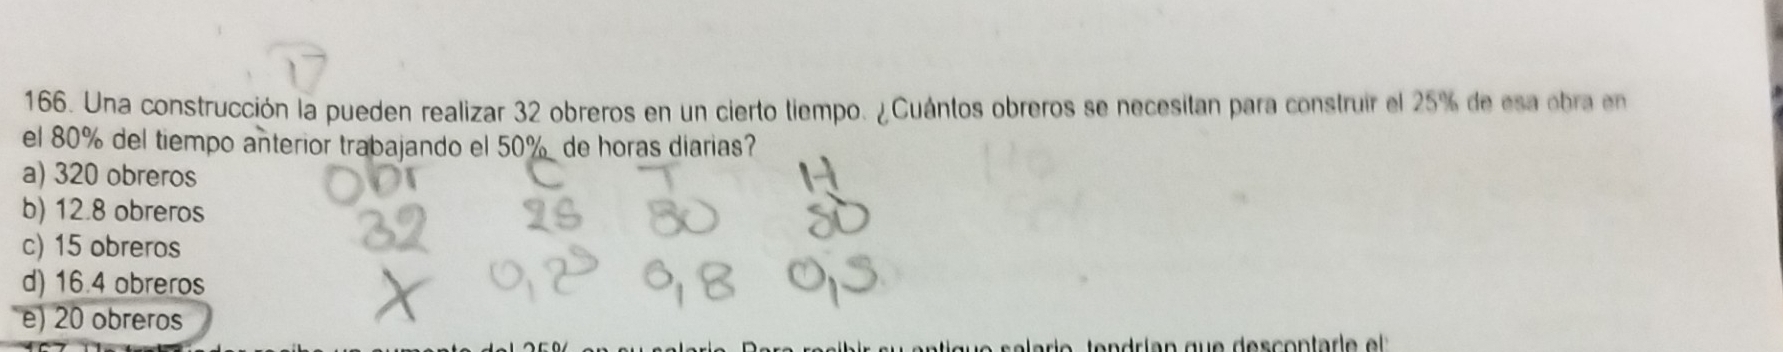 17
166. Una construcción la pueden realizar 32 obreros en un cierto tiempo. ¿Cuántos obreros se necesitan para construir el 25% de esa obra en
el 80% del tiempo anterior trabajando el 50% de horas diarias?
a) 320 obreros
Obr C T H
b) 12.8 obreros
32 25 80 50
c) 15 obreros
d) 16.4 obreros
X 0,25 0,8 0,5
e) 20 obreros
salario. Para recibir su antiguo salario, tendrían que descontarle el: